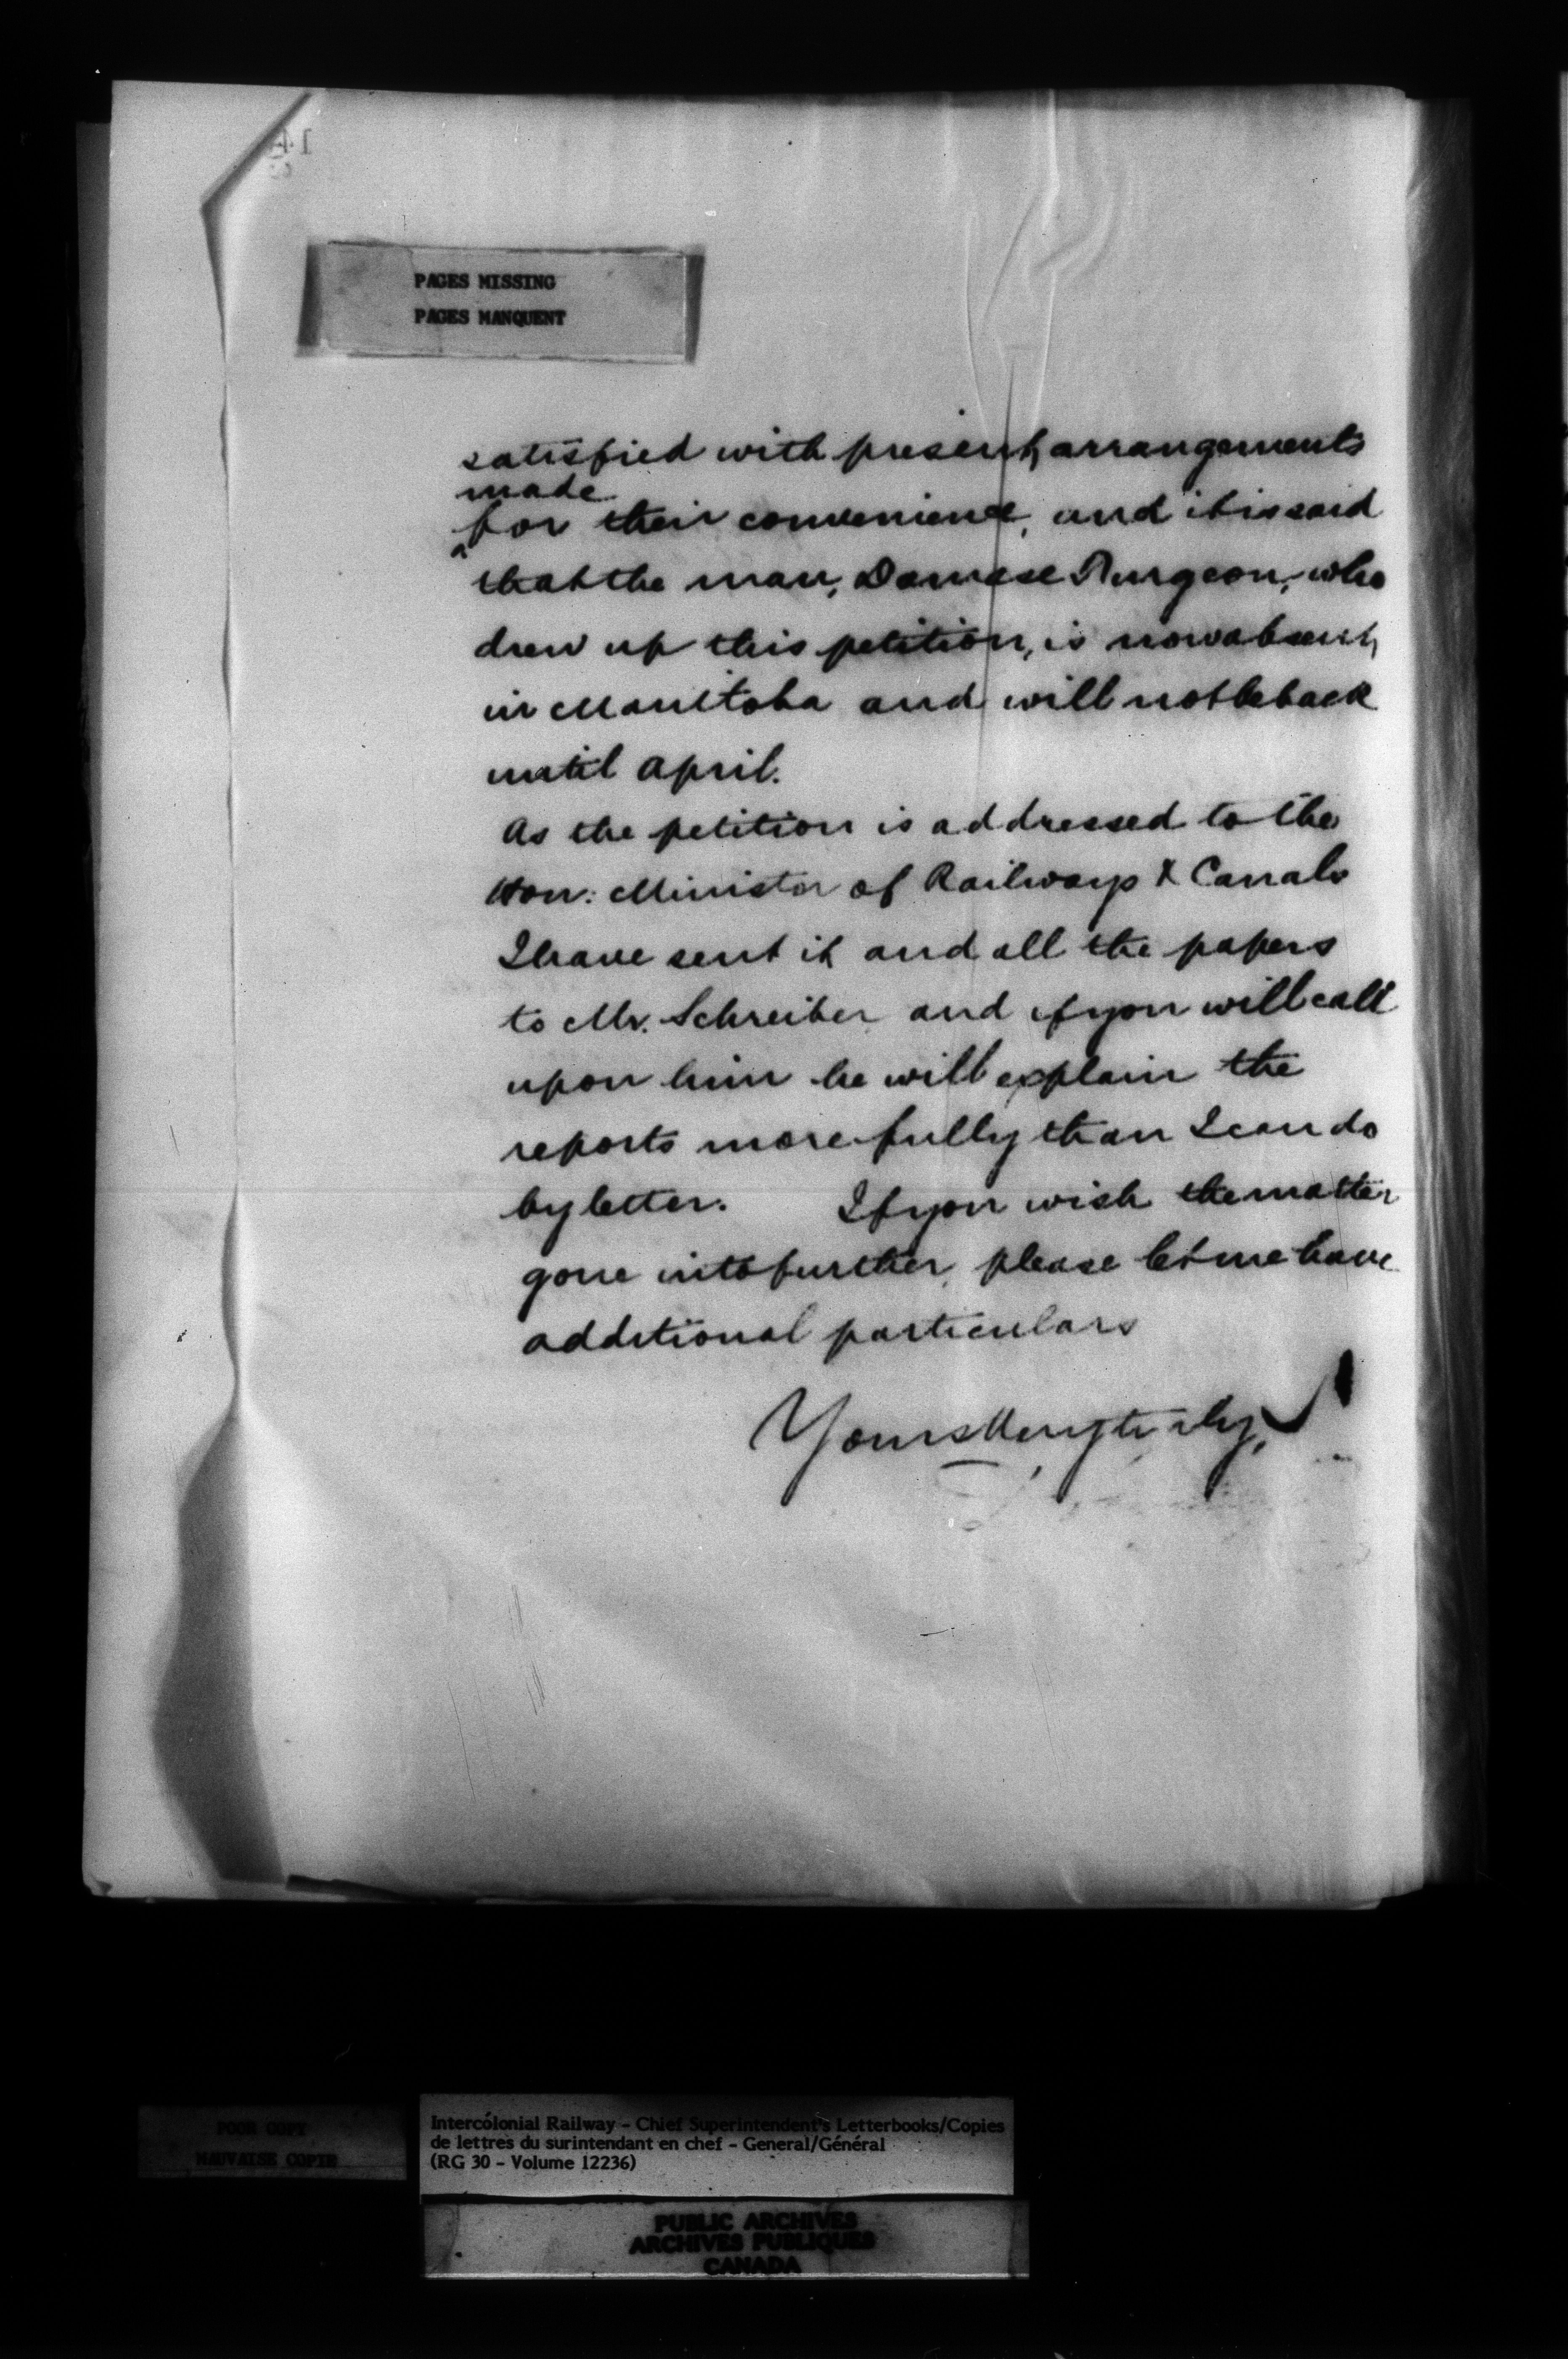 PAGES MISSING
PAGES MANQUENT
satisfied with present, arrangements
made
for their convenience, and it is said
that the man, Damese Turgeon, who
drew up this petition, is now absent,
in Manitoba and will not be back
until April.
As the petition is addressed to the
Hon: Minister of Railways & Canals
I have sent it and all the papers
to Mr. Schreiber and if you will call
upon him he will explain the
reports more fully than I can do
by letter. If you wish the matter
gone into further, please let me have
additional particulars
Yours Very truly,
POOR COPY
MAUVAISE COPIE
Intercolonial Railway - Chief Superintendent's Letterbooks/Copies
de lettres du surintendant en chef - General/Général
(RG 30 - Volume 12236)
PUBLIC ARCHIVES
ARCHIVES PUBLIQUES
CANADA